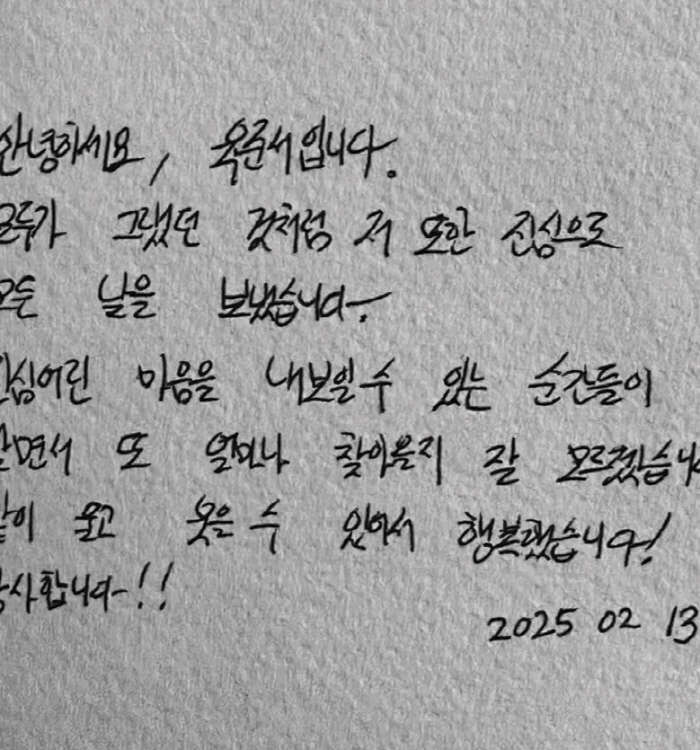 안녕하세요, 옥준서입니다.
모두가 그랬던 것처럼 저 또한 진심으로
모든 날을 보냈습니다.
진심어린 마음을 내보일 수 있는 순간들이
살면서 또 얼마나 찾아올지 잘 모르겠습니다
같이 울고 웃을 수 있어서 행복했습니다!
감사합니다!!
2025 02 13